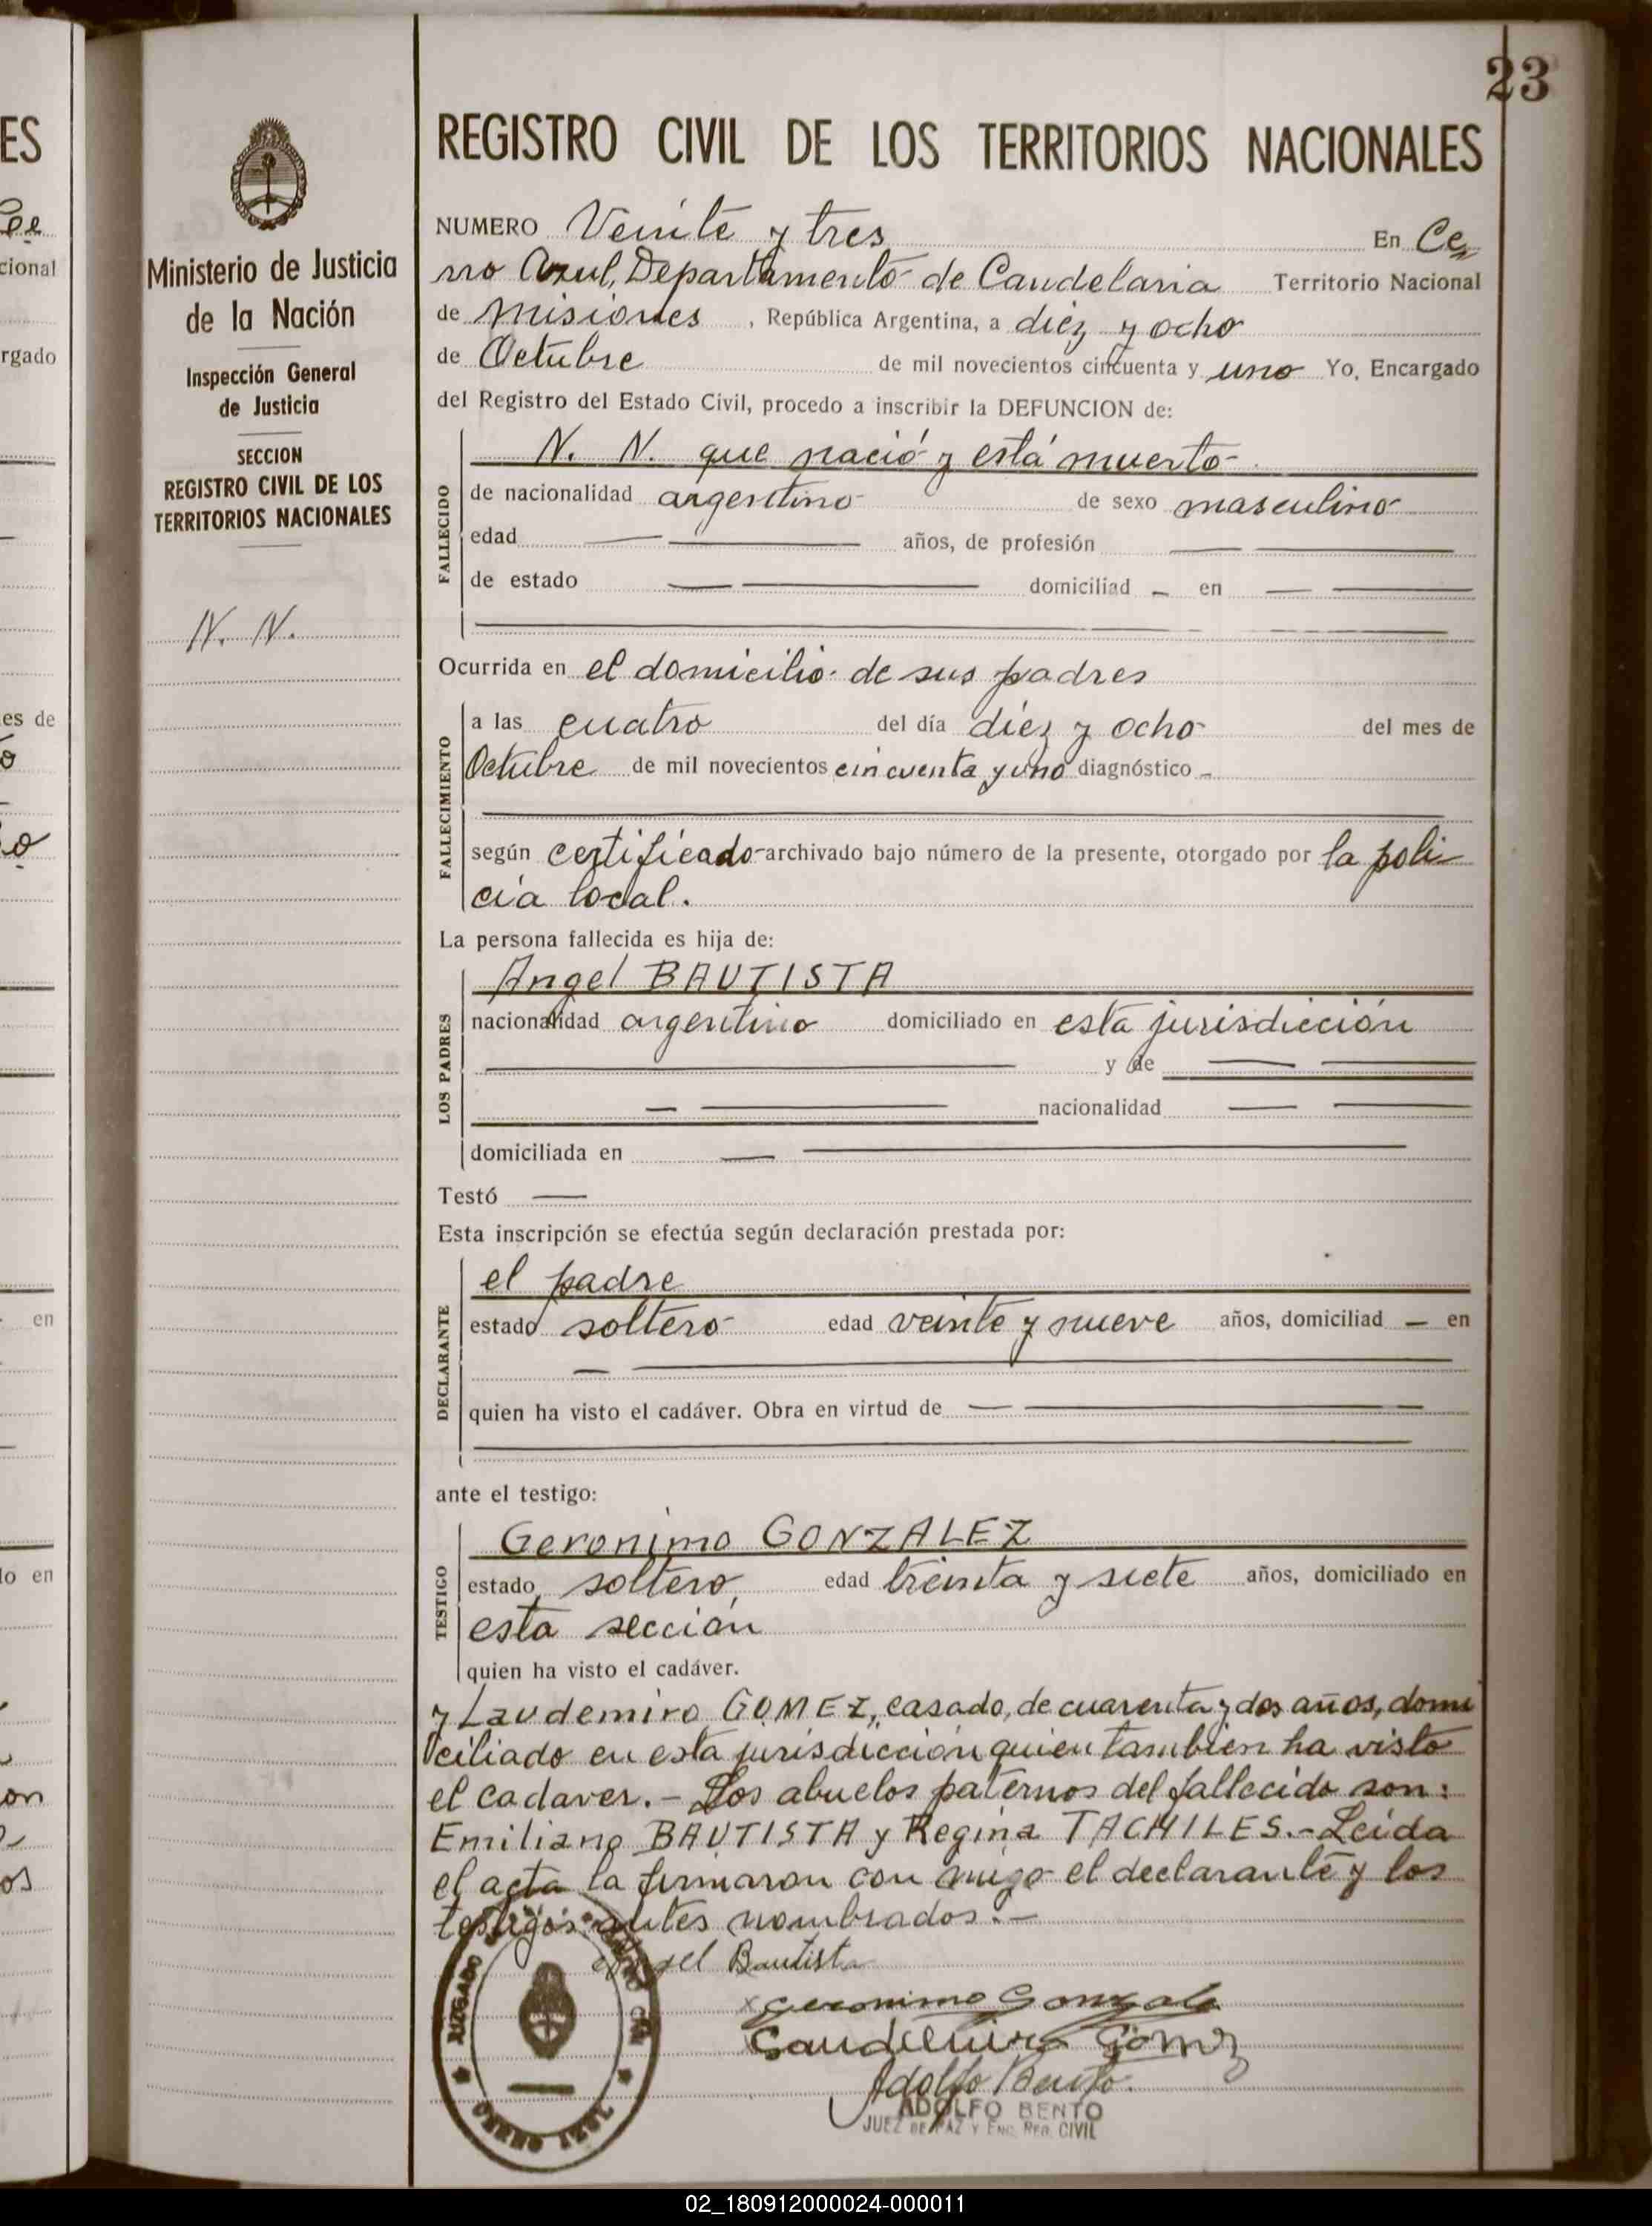 23
ES
REGISTRO CIVIL DE LOS TERRITORIOS NACIONALES
Ministerio de Justicia
de la Nación
Inspección General
de Justicia
SECCION
REGISTRO CIVIL DE LOS
TERRITORIOS NACIONALES
N. N.
NUMERO Veinte y tres En Ce
rro Azul, Departamento de Candelaria Territorio Nacional
de Misiones , República Argentina, a diez y ocho
de Octubre de mil novecientos cincuenta y uno Yo, Encargado
del Registro del Estado Civil, procedo a inscribir la DEFUNCION de:
FALLECIDO
N. N. que nació y está muerto
de nacionalidad argentino de sexo masculino
edad — años, de profesión —
de estado — domiciliad – en —
Ocurrida en el domicilio de sus padres
FALLECIMIENTO
a las cuatro del día diez y ocho del mes de
Octubre de mil novecientos cincuenta y uno diagnóstico –
según certificado archivado bajo número de la presente, otorgado por la poli
cía local.
La persona fallecida es hija de:
LOS PADRES
Angel BAUTISTA
nacionalidad argentino domiciliado en esta jurisdicción
— y de —
— nacionalidad —
domiciliada en —
Testó —
Esta inscripción se efectúa según declaración prestada por:
DECLARANTE
el padre
estado soltero edad veinte y nueve años, domiciliad — en
—
quien ha visto el cadáver. Obra en virtud de —
ante el testigo:
TESTIGO
Geronimo GONZALEZ
estado soltero, edad treinta y siete años, domiciliado en
esta sección
quien ha visto el cadáver.
y Laudemiro GOMEZ, casado, de cuarenta y dos años, domi
ciliado en esta jurisdicción quien tambien ha visto
el cadaver.- Los abuelos paternos del fallecido son:
Emiliano BAUTISTA y Regina TACHILES.- Leída
el acta la firmaron con migo el declarante y los
testigos antes nombrados.-
Angel Bautista
Geronimo Gonzale
Laudemiro Gomz
Adolfo Bento.
ADOLFO BENTO
JUEZ DE PAZ Y ENC. REG. CIVIL
JUZGADO
CERRO AZUL
cional
rgado
es de
en
lo en
02_180912000024-000011